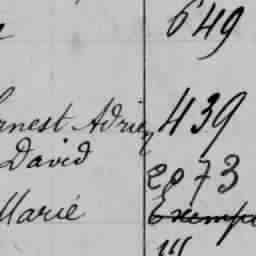 649
rnest Adrien 439
David 2073
Marie Exemp